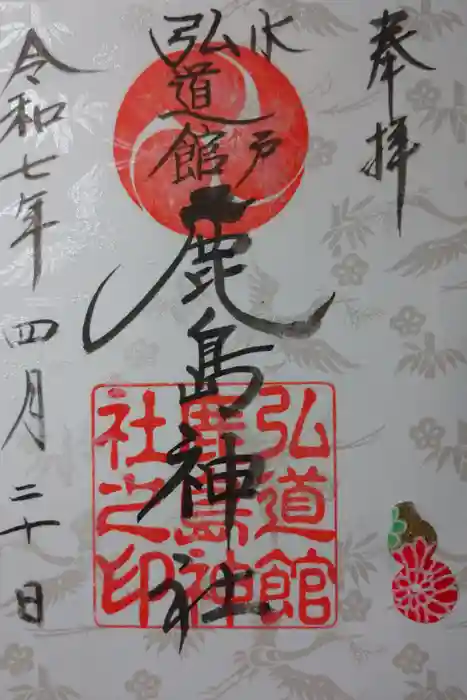 奉拝
水戸
弘道館
鹿島神社
弘道館
鹿島神
社之印
令和七年 四月 二十日